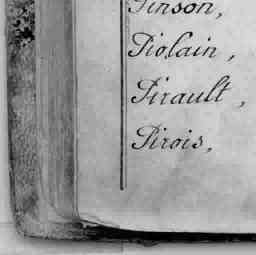 Pinson,
Piolain,
Pirault,
Pirois,